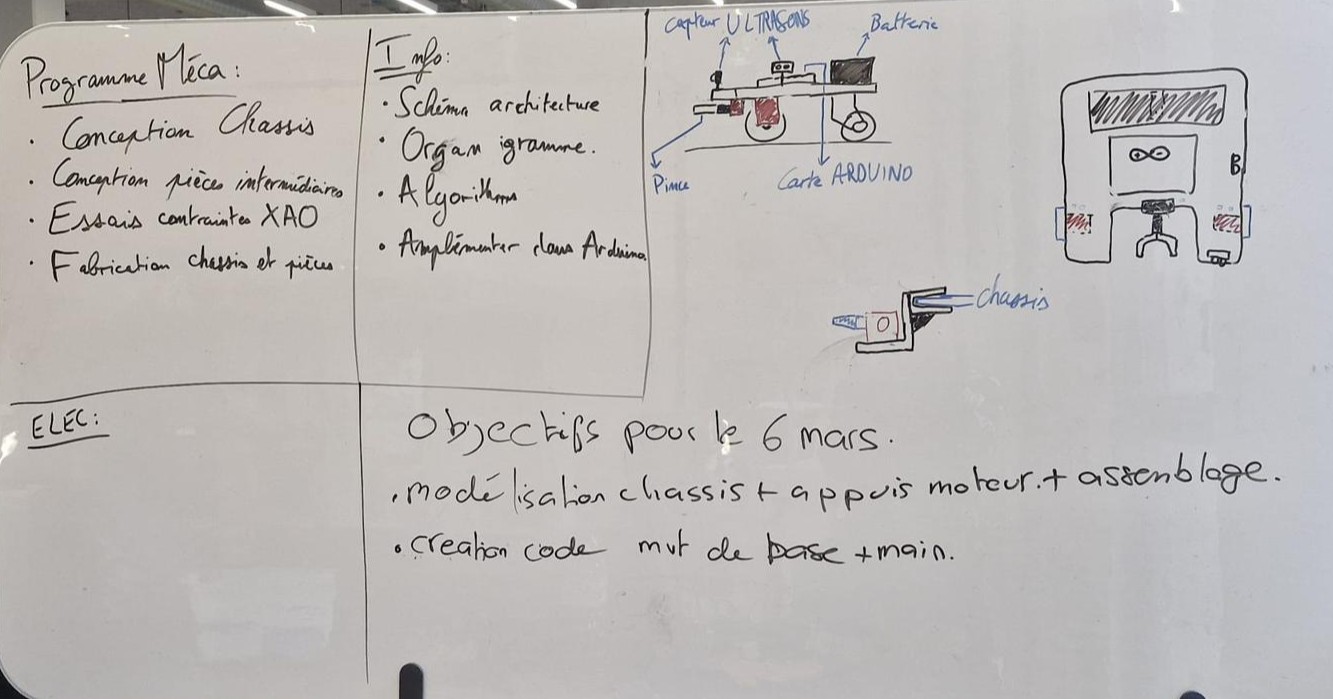 Programme Méca :
· Conception Chassis
· Conception pièces intermédiaires
· Essais contraintes XAO
· Fabrication chassis et pièces
Info :
· Schéma architecture
· Organigramme.
· Algorithms
· Amplémenter dans Arduino
capteur ULTRASONS
Batterie
Pince
Carte ARDUINO
B
chassis
ELEC :
Objectifs pour le 6 mars.
. modélisation chassis + appuis moteur. + assemblage.
. creation code mvt de base + main.